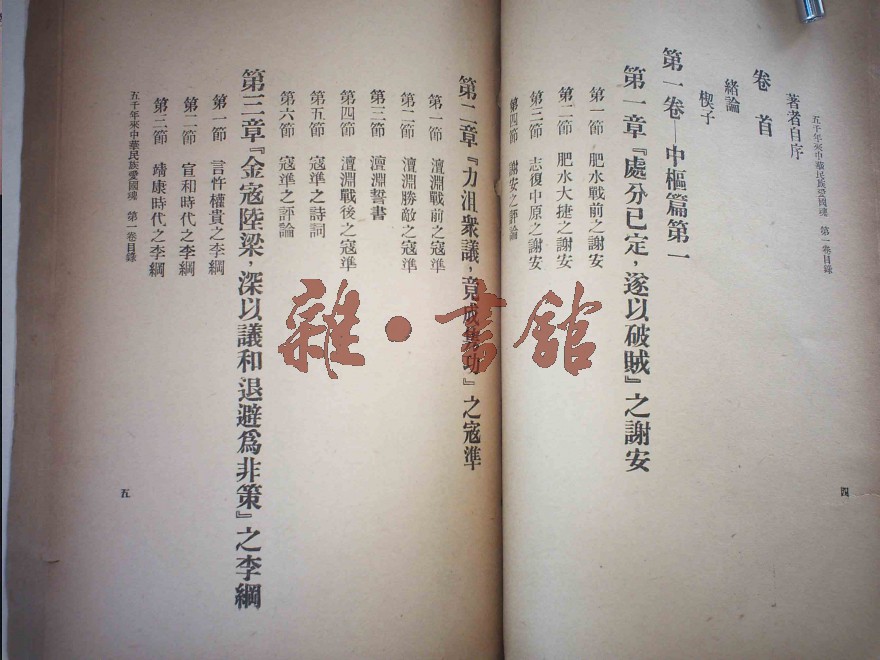 五千年來中華民族愛國魂　第一卷目錄
著者自序
卷　首
緒論
楔子
第一卷—中樞篇第一
第一章『處分已定，遂以破賊』之謝安
第一節　肥水戰前之謝安
第二節　肥水大捷之謝安
第三節　志復中原之謝安
第四節　謝安之評論
四
第二章『力沮衆議，竟成雋功』之寇準
第一節　澶淵戰前之寇準
第二節　澶淵勝敵之寇準
第三節　澶淵誓書
第四節　澶淵戰後之寇準
第五節　寇準之詩詞
第六節　寇準之評論
第三章『金寇陸梁，深以議和退避爲非策』之李綱
第一節　言忤權貴之李綱
第二節　宣和時代之李綱
第三節　靖康時代之李綱
五千年來中華民族愛國魂　第一卷目錄
五
雜·書舘